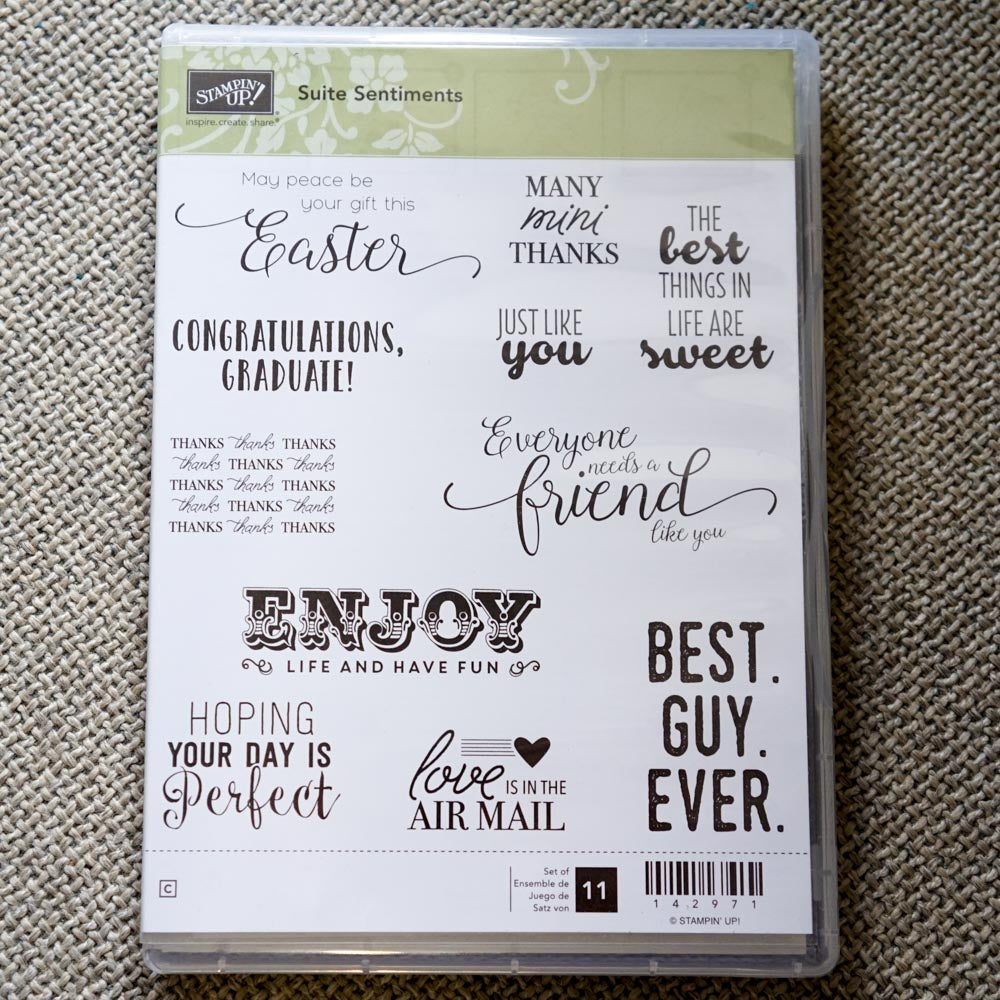 STAMPIN' UP!®
inspire.create.share.®
Suite Sentiments
May peace be
your gift this
Easter
MANY
mini
THANKS
THE
best
THINGS IN
LIFE ARE
sweet
CONGRATULATIONS,
GRADUATE!
JUST LIKE
you
THANKS thanks THANKS
thanks THANKS thanks
THANKS thanks THANKS
thanks THANKS thanks
THANKS thanks THANKS
Everyone
needs a
friend
like you
ENJOY
LIFE AND HAVE FUN
BEST.
GUY.
EVER.
HOPING
YOUR DAY IS
Perfect
love IS IN THE
AIR MAIL
C
Set of
Ensemble de
Juego de
Satz von
11
142971
© STAMPIN' UP!